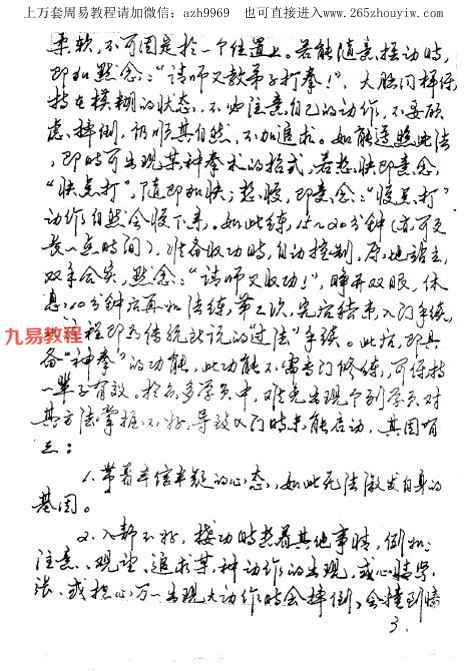 上万套周易教程请加微信：azh9969 也可直接进入---www.265zhouyiw.com
柔软，不可固定于一个位置上。若能随意摇动时，
即和默念：“请师父教弟子打拳！”，大脑同样保
持在模糊的状态，不必注意自己的动作，不要顾
虑摔倒，仍顺其自然，不加追求。如能遵照此法
，即时可出现某种拳术的招式，若想快即意念，
“快点打”，随即加快；想慢，即意念：“慢点打”
动作自然会慢下来。如此练，15～20分钟（亦可更
长一点时间），准备收功时，自动控制，原地站立，
双手合实，默念：“请师父收功！”，睁开双眼，休
息，10分钟后再如法练，第三次，完后结束入门手续
九易教程
程即为传统所说的“过法”手续。此后，即具
备“神拳”的功能，此功能不需专门修练，可保持
一辈子有效。于众多学员中，难免出现个别学员对
其方法掌握不好，导致入门时未能启动，其因有
三：
1、带着半信半疑的心态，如此无法激发自身的
基因。
2、入静不好，接功时想着其他事情，例如：
注意、观望、追求某种动作的出现，或心情紧
张，或担心万一出现大动作时会摔倒、会撞到墙
3.